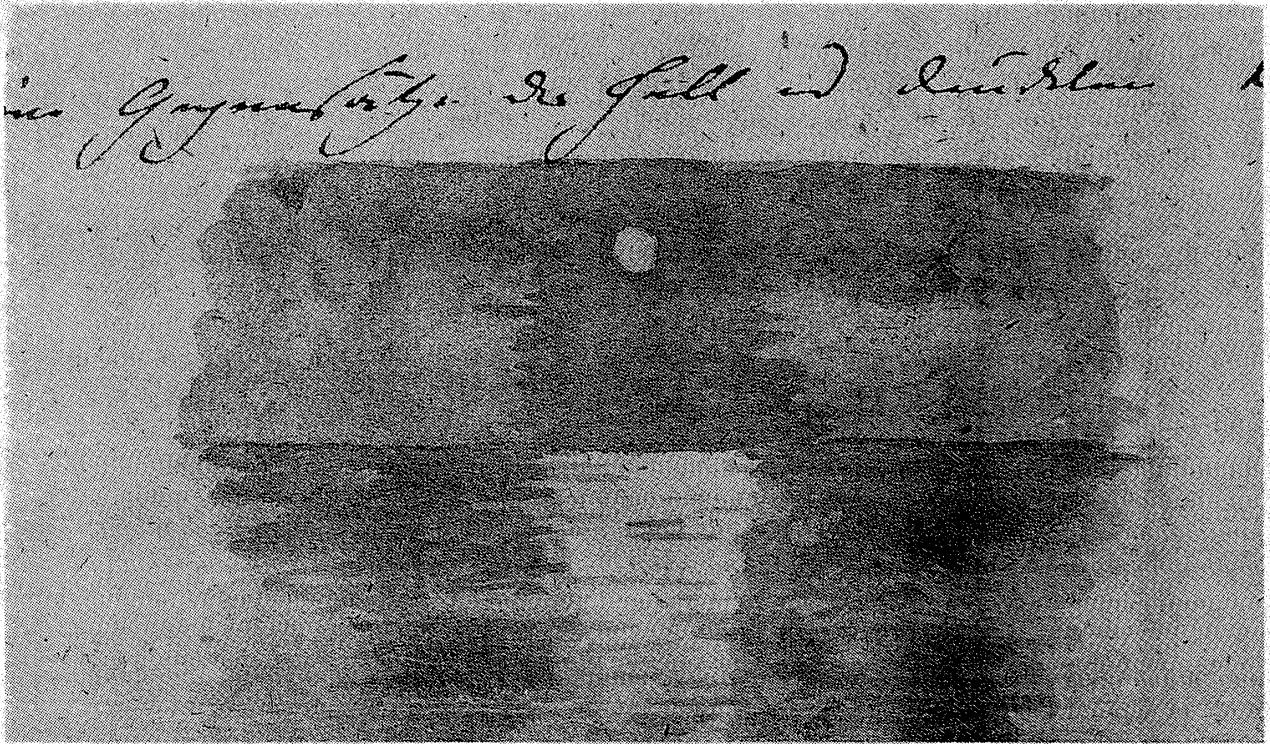 Gegensätze des Hell und Dunklen